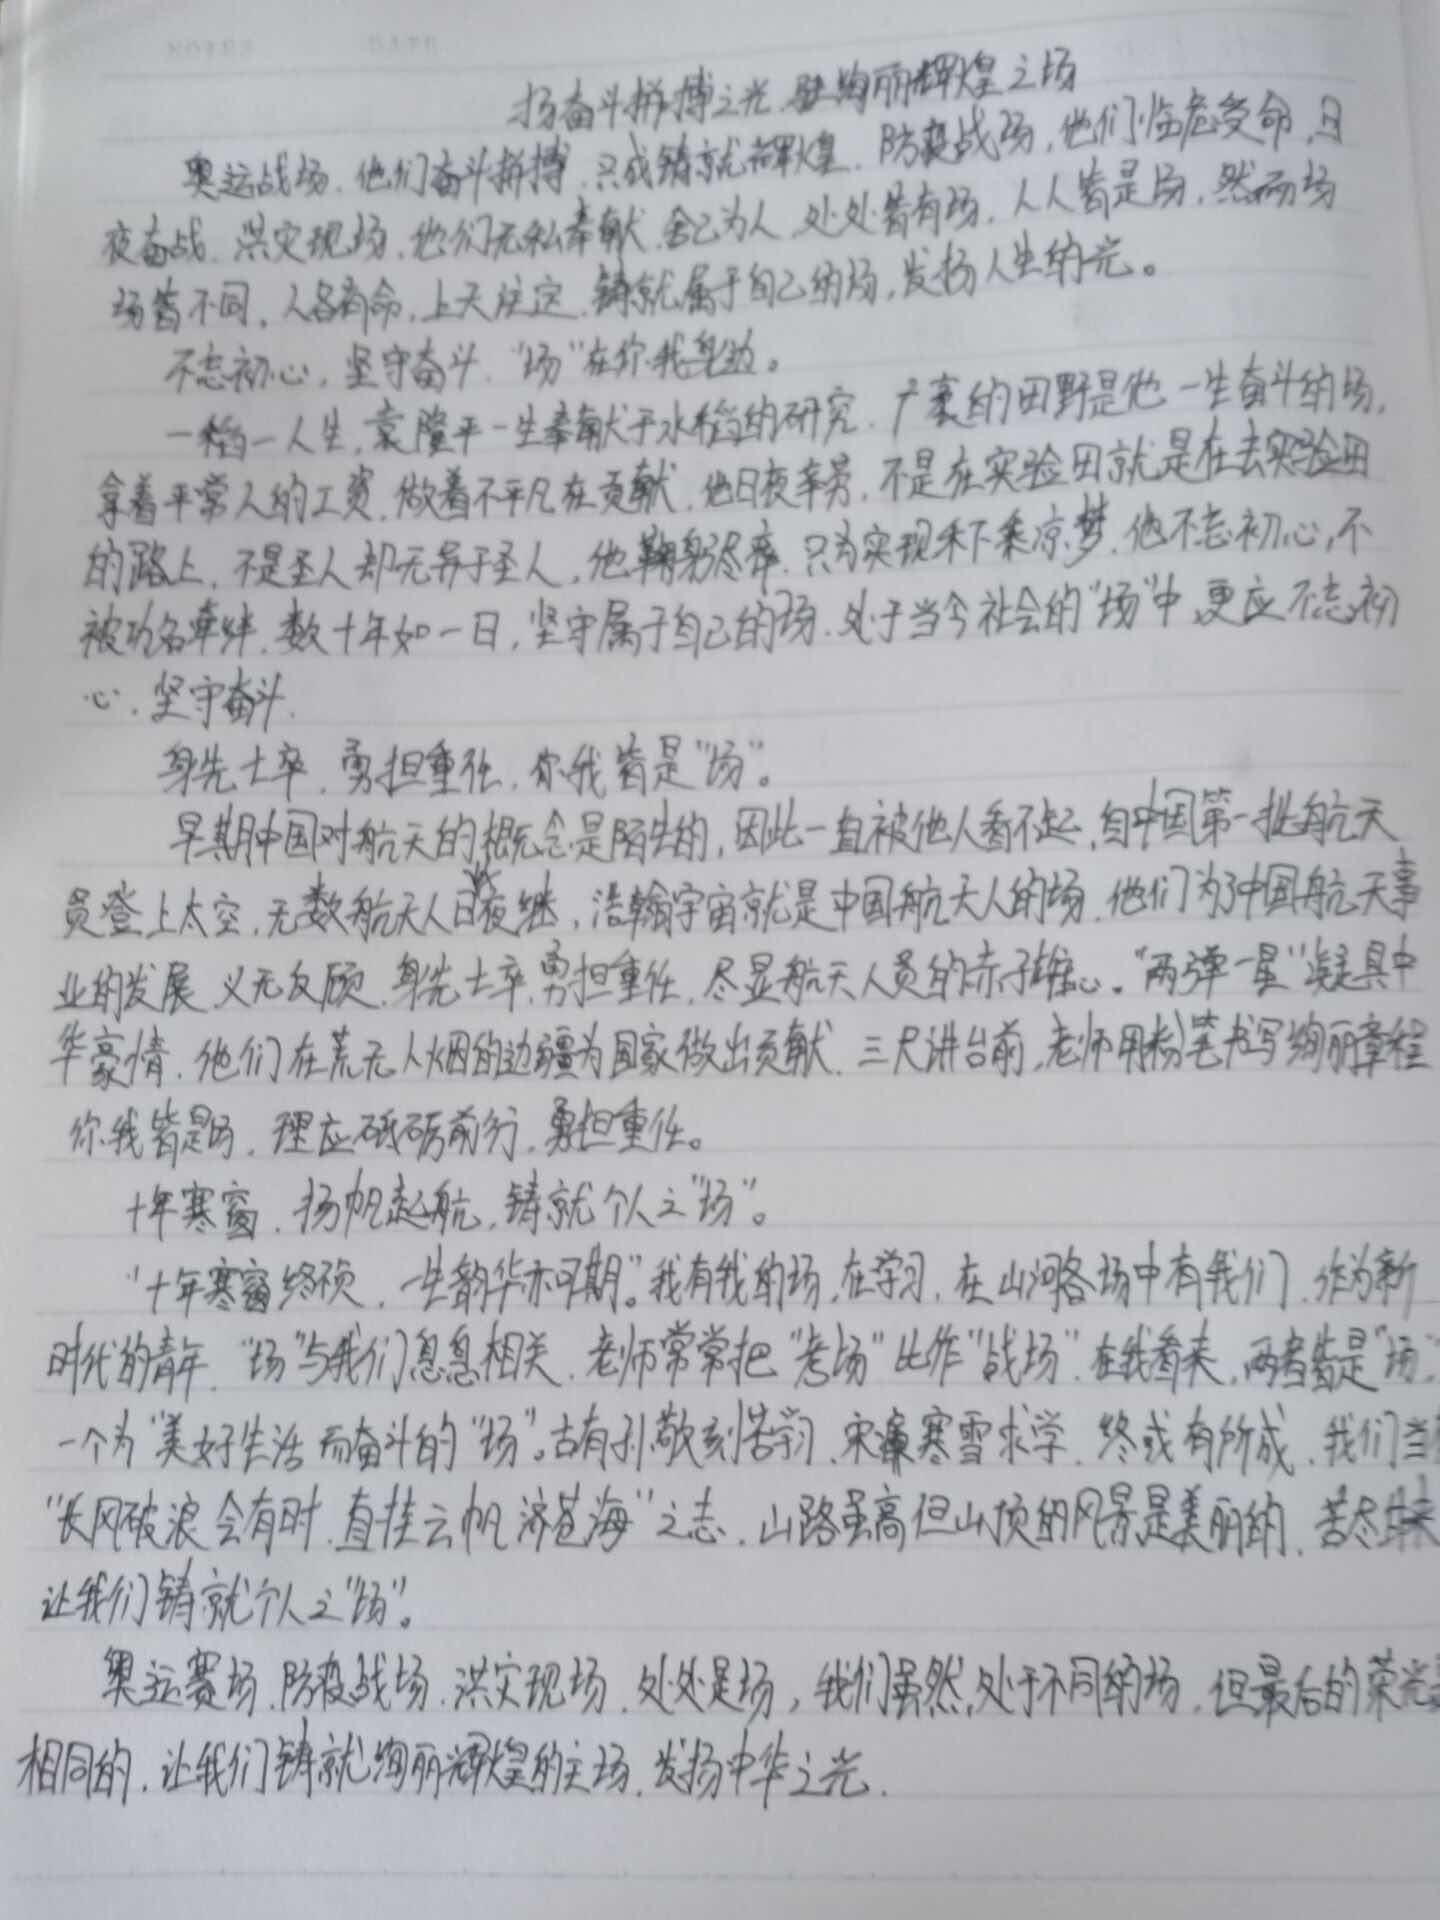 扬奋斗拼搏之光,驻绚丽辉煌之场
奥运战场,他们奋斗拼搏,只成铸就辉煌,防疫战场,他们临危受命,日
夜奋战,洪灾现场,他们无私奉献,舍己为人,处处皆有场,人人皆是场,然而场
场皆不同,人各有命,上天注定,铸就属于自己的场,发扬人生的光。
不忘初心,坚守奋斗,"场"在你我身边。
一稻一人生,袁隆平一生奉献于水稻的研究,广袤的田野是他一生奋斗的场,
拿着平常人的工资,做着不平凡在贡献,他日夜辛劳,不是在实验田就是在去实验田
的路上,不是圣人却无异于圣人,他鞠躬尽瘁,只为实现禾下乘凉梦,他不忘初心,不
被功名牵绊,数十年如一日,坚守属于自己的场,处于当今社会的"场"中,更应不忘初
心,坚守奋斗.
身先士卒,勇担重任,你我皆是"场"。
早期中国对航天的概念是陌生的,因此一直被他人看不起,自中国第一批航天
员登上太空,无数航天人日以夜继,浩瀚宇宙就是中国航天人的场,他们为了中国航天事
业的发展,义无反顾,身先士卒,勇担重任,尽显航天人员的赤子雄心。"两弹一星"凝具中
华豪情,他们在荒无人烟的边疆为国家做出贡献,三尺讲台前,老师用粉笔书写绚丽章程
你我皆是场,理应砥砺前行,勇担重任。
十年寒窗,扬帆起航,铸就个人之"场"。
"十年寒窗终须,一生韵华亦可期"。我有我的场,在学习,在山河各场中有我们,作为新
时代的青年,"场"与我们息息相关,老师常常把"考场"比作"战场",在我看来,两者皆是"场,"
一个为"美好生活而奋斗的"场"。古有孙敬刻苦学习,宋濂寒雪求学,终或有所成,我们当
"长风破浪会有时,直挂云帆济苍海"之志,山路虽高但山顶的风景是美丽的,苦尽
让我们铸就个人之"场"。
奥运赛场,防疫战场,洪灾现场,处处是场,我们虽然处于不同的场,但最后的荣光是
相同的,让我们铸就绚丽辉煌的主场,发扬中华之光.